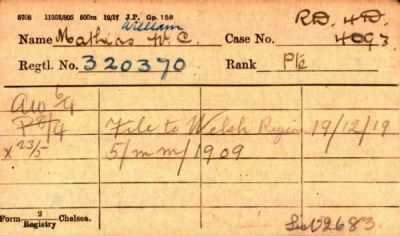 5708 11952/805 500m 12/17 J.P. Gp. 158 R.D. 4.D.
William
Name Mathias W. C. Case No. 4093
Regtl. No. 320370 Rank Pte
AW 6/4
P 8/4 File to Welsh Region 19/12/19
x 23/5 5/mm/1909
Form 2/Registry Chelsea.
List 2683